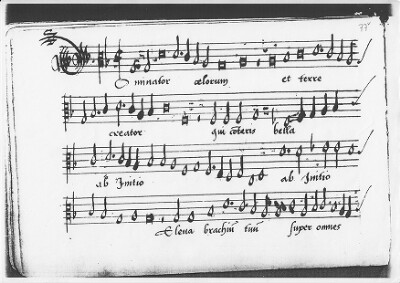 77
Dominator cælorum et terre
creator qui coteris bella
ab Initio ab Initio
Eleva brachiũ tuũ super omnes